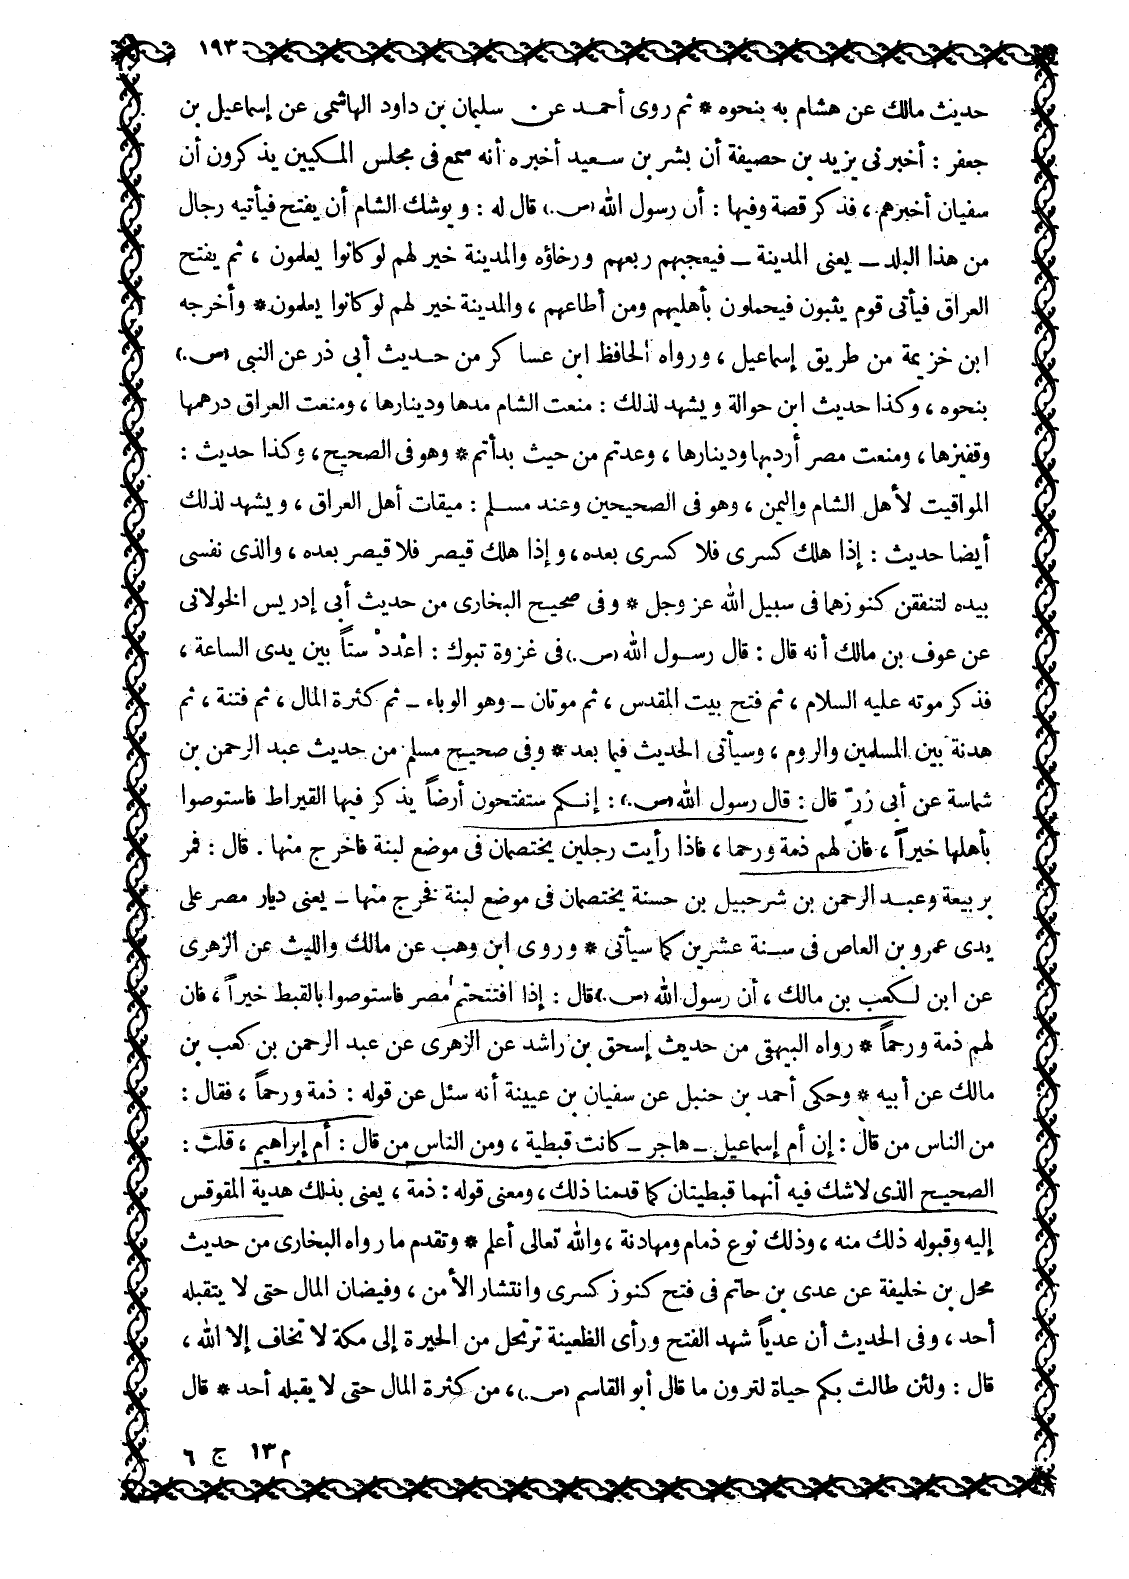 ١٩٣
حديث مالك عن هشام به بنحوه * ثم روى أحمد عن سليمان بن داود الهاشمى عن إسماعيل بن
جعفر : أخبرنى يزيد بن حصيفة أن بشر بن سعيد أخبره أنه سمع فى مجلس المكيين يذكرون أن
سفيان أخبرهم ، فذكر قصة وفيها : أن رسول الله (ص.) قال له : ويوشك الشام أن يفتح فيأتيه رجال
من هذا البلد ــ يعنى المدينة ــ فيعجبهم ربعهم ورخاؤه والمدينة خير لهم لو كانوا يعلمون ، ثم يفتح
العراق فيأتى قوم يثبون فيحملون بأهليهم ومن أطاعهم ، والمدينة خير لهم لو كانوا يعلمون * وأخرجه
ابن خزيمة من طريق إسماعيل ، ورواه الحافظ ابن عساكر من حديث أبى ذر عن النبى (ص.)
بنحوه ، وكذا حديث ابن حوالة ويشهد لذلك : منعت الشام مدها ودينارها ، ومنعت العراق درهمها
وقفيزها ، ومنعت مصر أردبها ودينارها ، وعدتم من حيث بدأتم * وهو فى الصحيح ، وكذا حديث :
المواقيت لأهل الشام واليمن ، وهو فى الصحيحين وعند مسلم : ميقات أهل العراق ، ويشهد لذلك
أيضا حديث : إذا هلك كسرى فلا كسرى بعده ، وإذا هلك قيصر فلا قيصر بعده ، والذى نفسى
بيده لتنفقن كنوزهما فى سبيل الله عز وجل * وفى صحيح البخارى من حديث أبى إدريس الخولانى
عن عوف بن مالك أنه قال : قال رسول الله (ص.) فى غزوة تبوك : اعْدُدْ ستاً بين يدى الساعة ،
فذكر موته عليه السلام ، ثم فتح بيت المقدس ، ثم موتان ــ وهو الوباء ــ ثم كثرة المال ، ثم فتنة ، ثم
هدنة بين المسلمين والروم ، وسيأتى الحديث فيما بعد * وفى صحيح مسلم من حديث عبد الرحمن بن
شماسة عن أبى زرّ قال : قال رسول الله (ص.) : إنكم ستفتحون أرضاً يذكر فيها القيراط فاستوصوا
بأهلها خيراً ، فان لهم ذمة ورحما ، فاذا رأيت رجلين يختصمان فى موضع لبنة فاخرج منها . قال : فمر
بربيعة وعبد الرحمن بن شرحبيل بن حسنة يختصمان فى موضع لبنة فخرج منها ــ يعنى ديار مصر على
يدى عمرو بن العاص فى سنة عشرين كما سيأتى * وروى ابن وهب عن مالك والليث عن الزهرى
عن ابن لكعب بن مالك ، أن رسول الله (ص.) قال : إذا افتتحتم مصر فاستوصوا بالقبط خيراً ، فان
لهم ذمة ورحماً * رواه البيهقى من حديث إسحق بن راشد عن الزهرى عن عبد الرحمن بن كعب بن
مالك عن أبيه * وحكى أحمد بن حنبل عن سفيان بن عيينة أنه سئل عن قوله : ذمة ورحماً ، فقال :
من الناس من قال : إن أم إسماعيل ــ هاجر ــ كانت قبطية ، ومن الناس من قال : أم إبراهيم ، قلت :
الصحيح الذى لاشك فيه أنهما قبطيتان كما قدمنا ذلك ، ومعنى قوله : ذمة ، يعنى بذلك هدية المقوقس
إليه وقبوله ذلك منه ، وذلك نوع ذمام ومهادنة ، والله تعالى أعلم * وتقدم ما رواه البخارى من حديث
محل بن خليفة عن عدى بن حاتم فى فتح كنوز كسرى وانتشار الأمن ، وفيضان المال حتى لا يتقبله
أحد ، وفى الحديث أن عدياً شهد الفتح ورأى الظعينة ترتحل من الحيرة إلى مكة لا تخاف إلا الله ،
قال : ولئن طالت بكم حياة لترون ما قال أبو القاسم (ص.) ، من كثرة المال حتى لا يقبله أحد * قال
م١٣ ج ٦